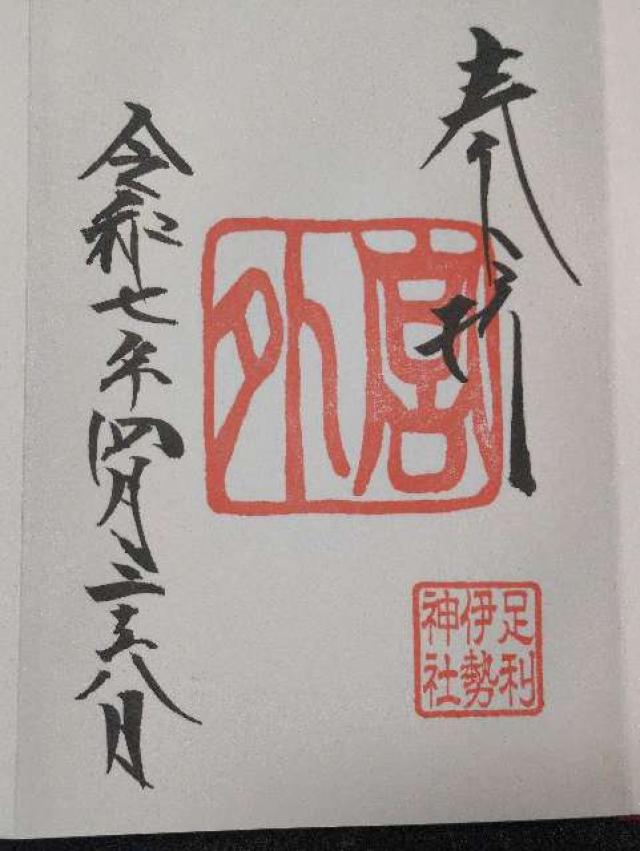 奉拝
外宮
足利
伊勢
神社
令和七年四月二十八日